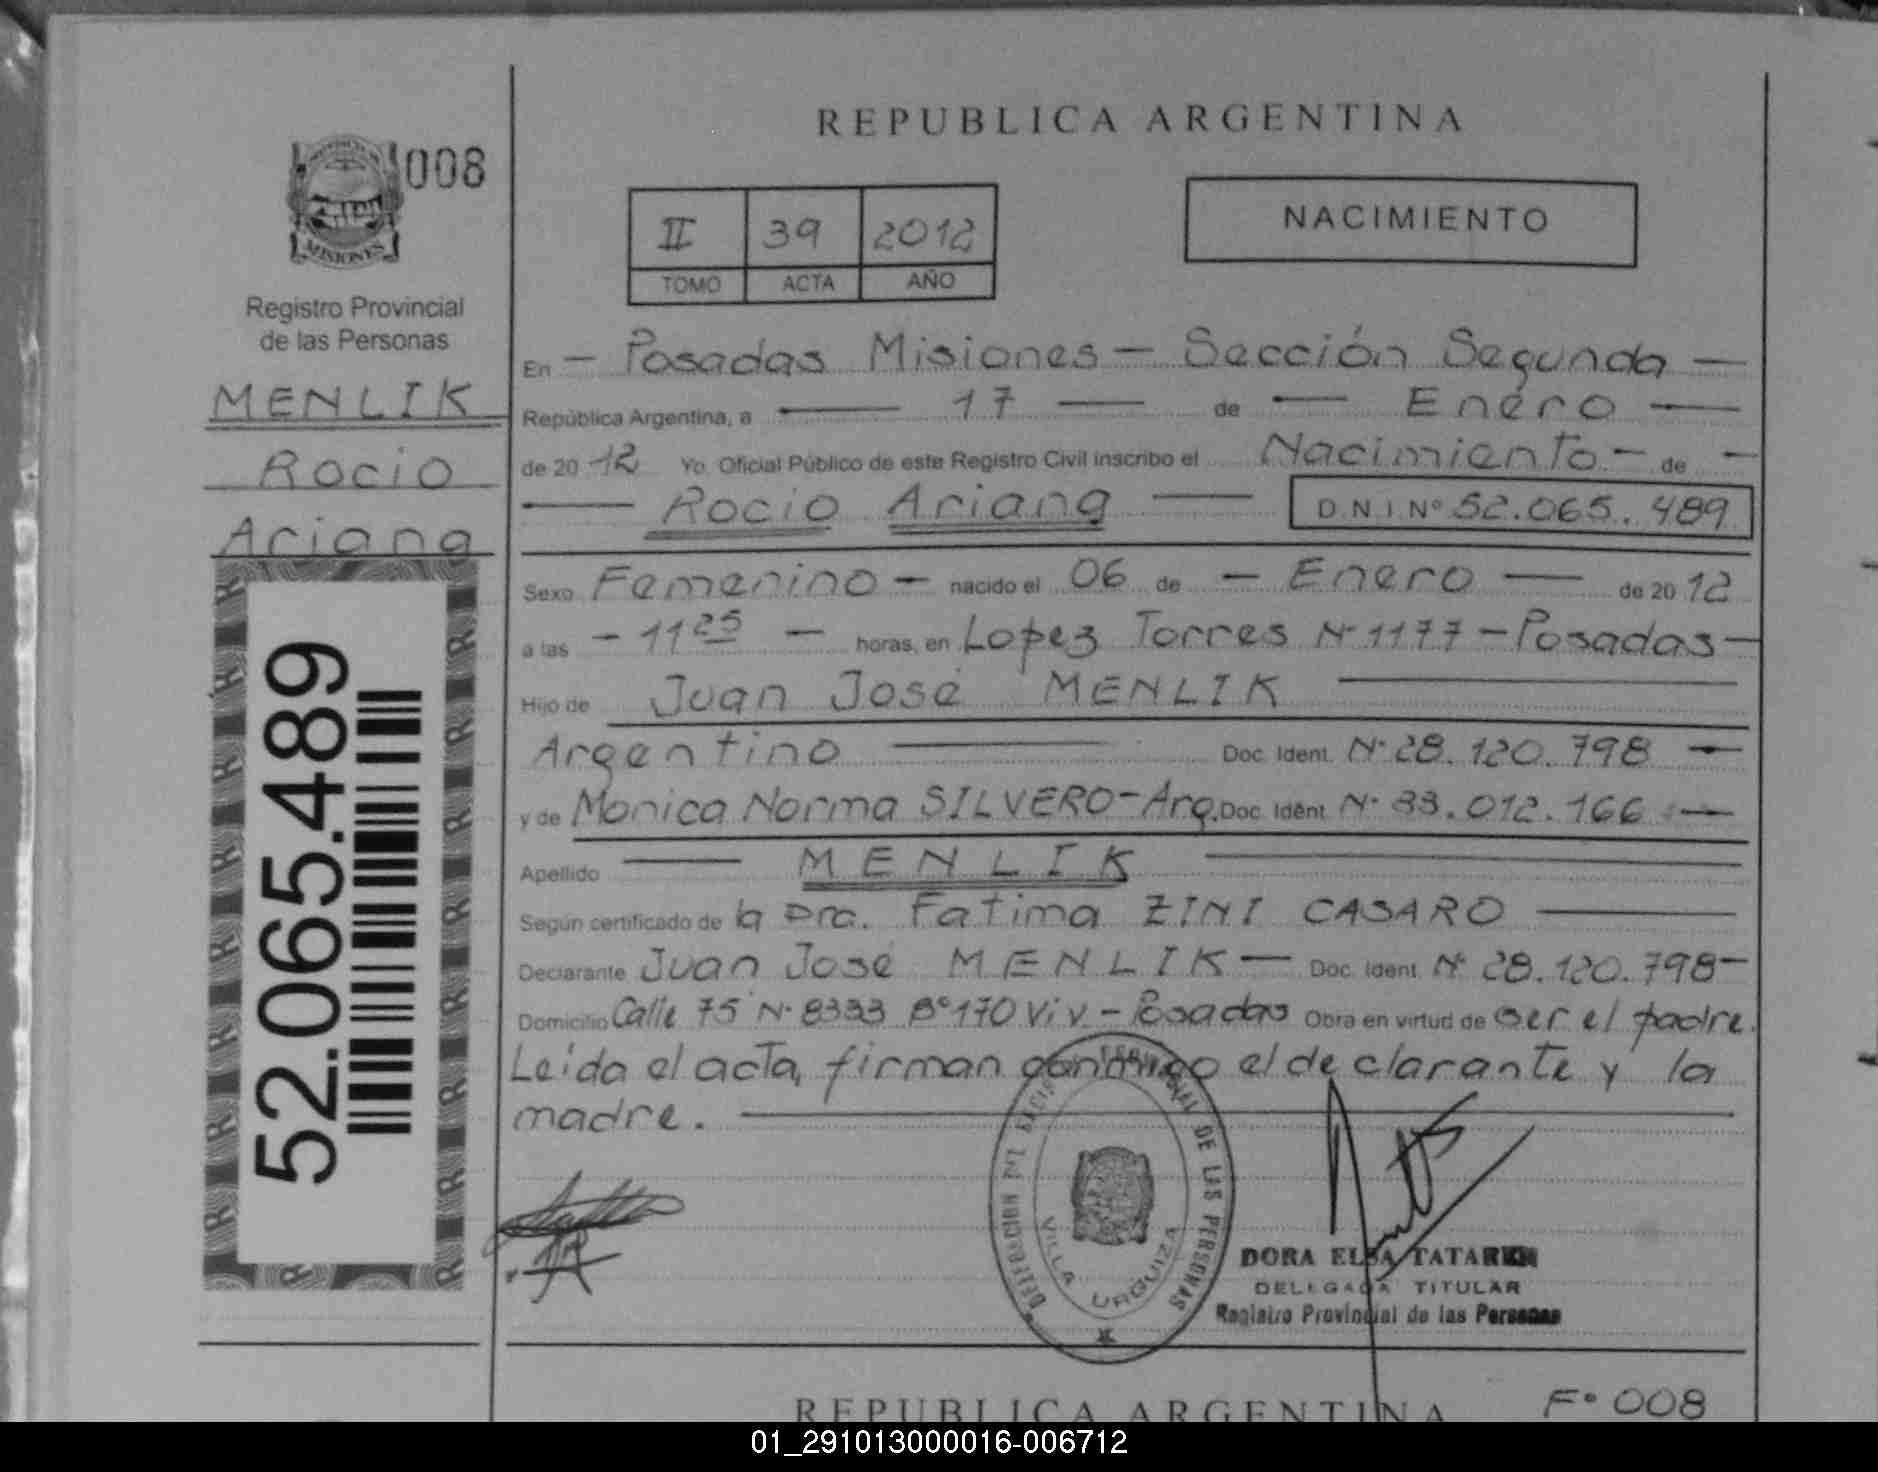 008
MISIONES
Registro Provincial
de las Personas
MENLIK
Rocio
Ariana
52.065.489
REPUBLICA ARGENTINA
II 39 2012
TOMO ACTA AÑO
NACIMIENTO
En - Posadas Misiones - Sección Segunda -
República Argentina, a — 17 — de — Enero —
de 20 12 Yo Oficial Público de este Registro Civil inscribo el Nacimiento - de -
— Rocio Ariana — D.N.I. Nº 52.065.489
Sexo Femenino - nacido el 06 de - Enero — de 20 12
a las - 11 25 - horas, en Lopez Torres Nº 1177 - Posadas -
Hijo de Juan José MENLIK —
Argentino — Doc. Ident. Nº 28.120.798 -
y de Monica Norma SILVERO - Arg. Doc. Ident. Nº 33.012.166 -
Apellido — MENLIK —
Según certificado de la Dra. Fatima ZINI CASARO —
Declarante Juan José MENLIK - Doc. Ident. Nº 28.120.798 -
Domicilio Calle 75 Nº 8333 Bº 170 Viv - Posadas Obra en virtud de ser el padre.
Leída el acta, firman conmigo el declarante y la
madre. —
PROVINCIAL DE LAS PERSONAS
VILLA URQUIZA
DORA ELSA TATAREN
DELEGADA TITULAR
Registro Provincial de las Personas
REPUBLICA ARGENTINA
Fº 008
01_291013000016-006712